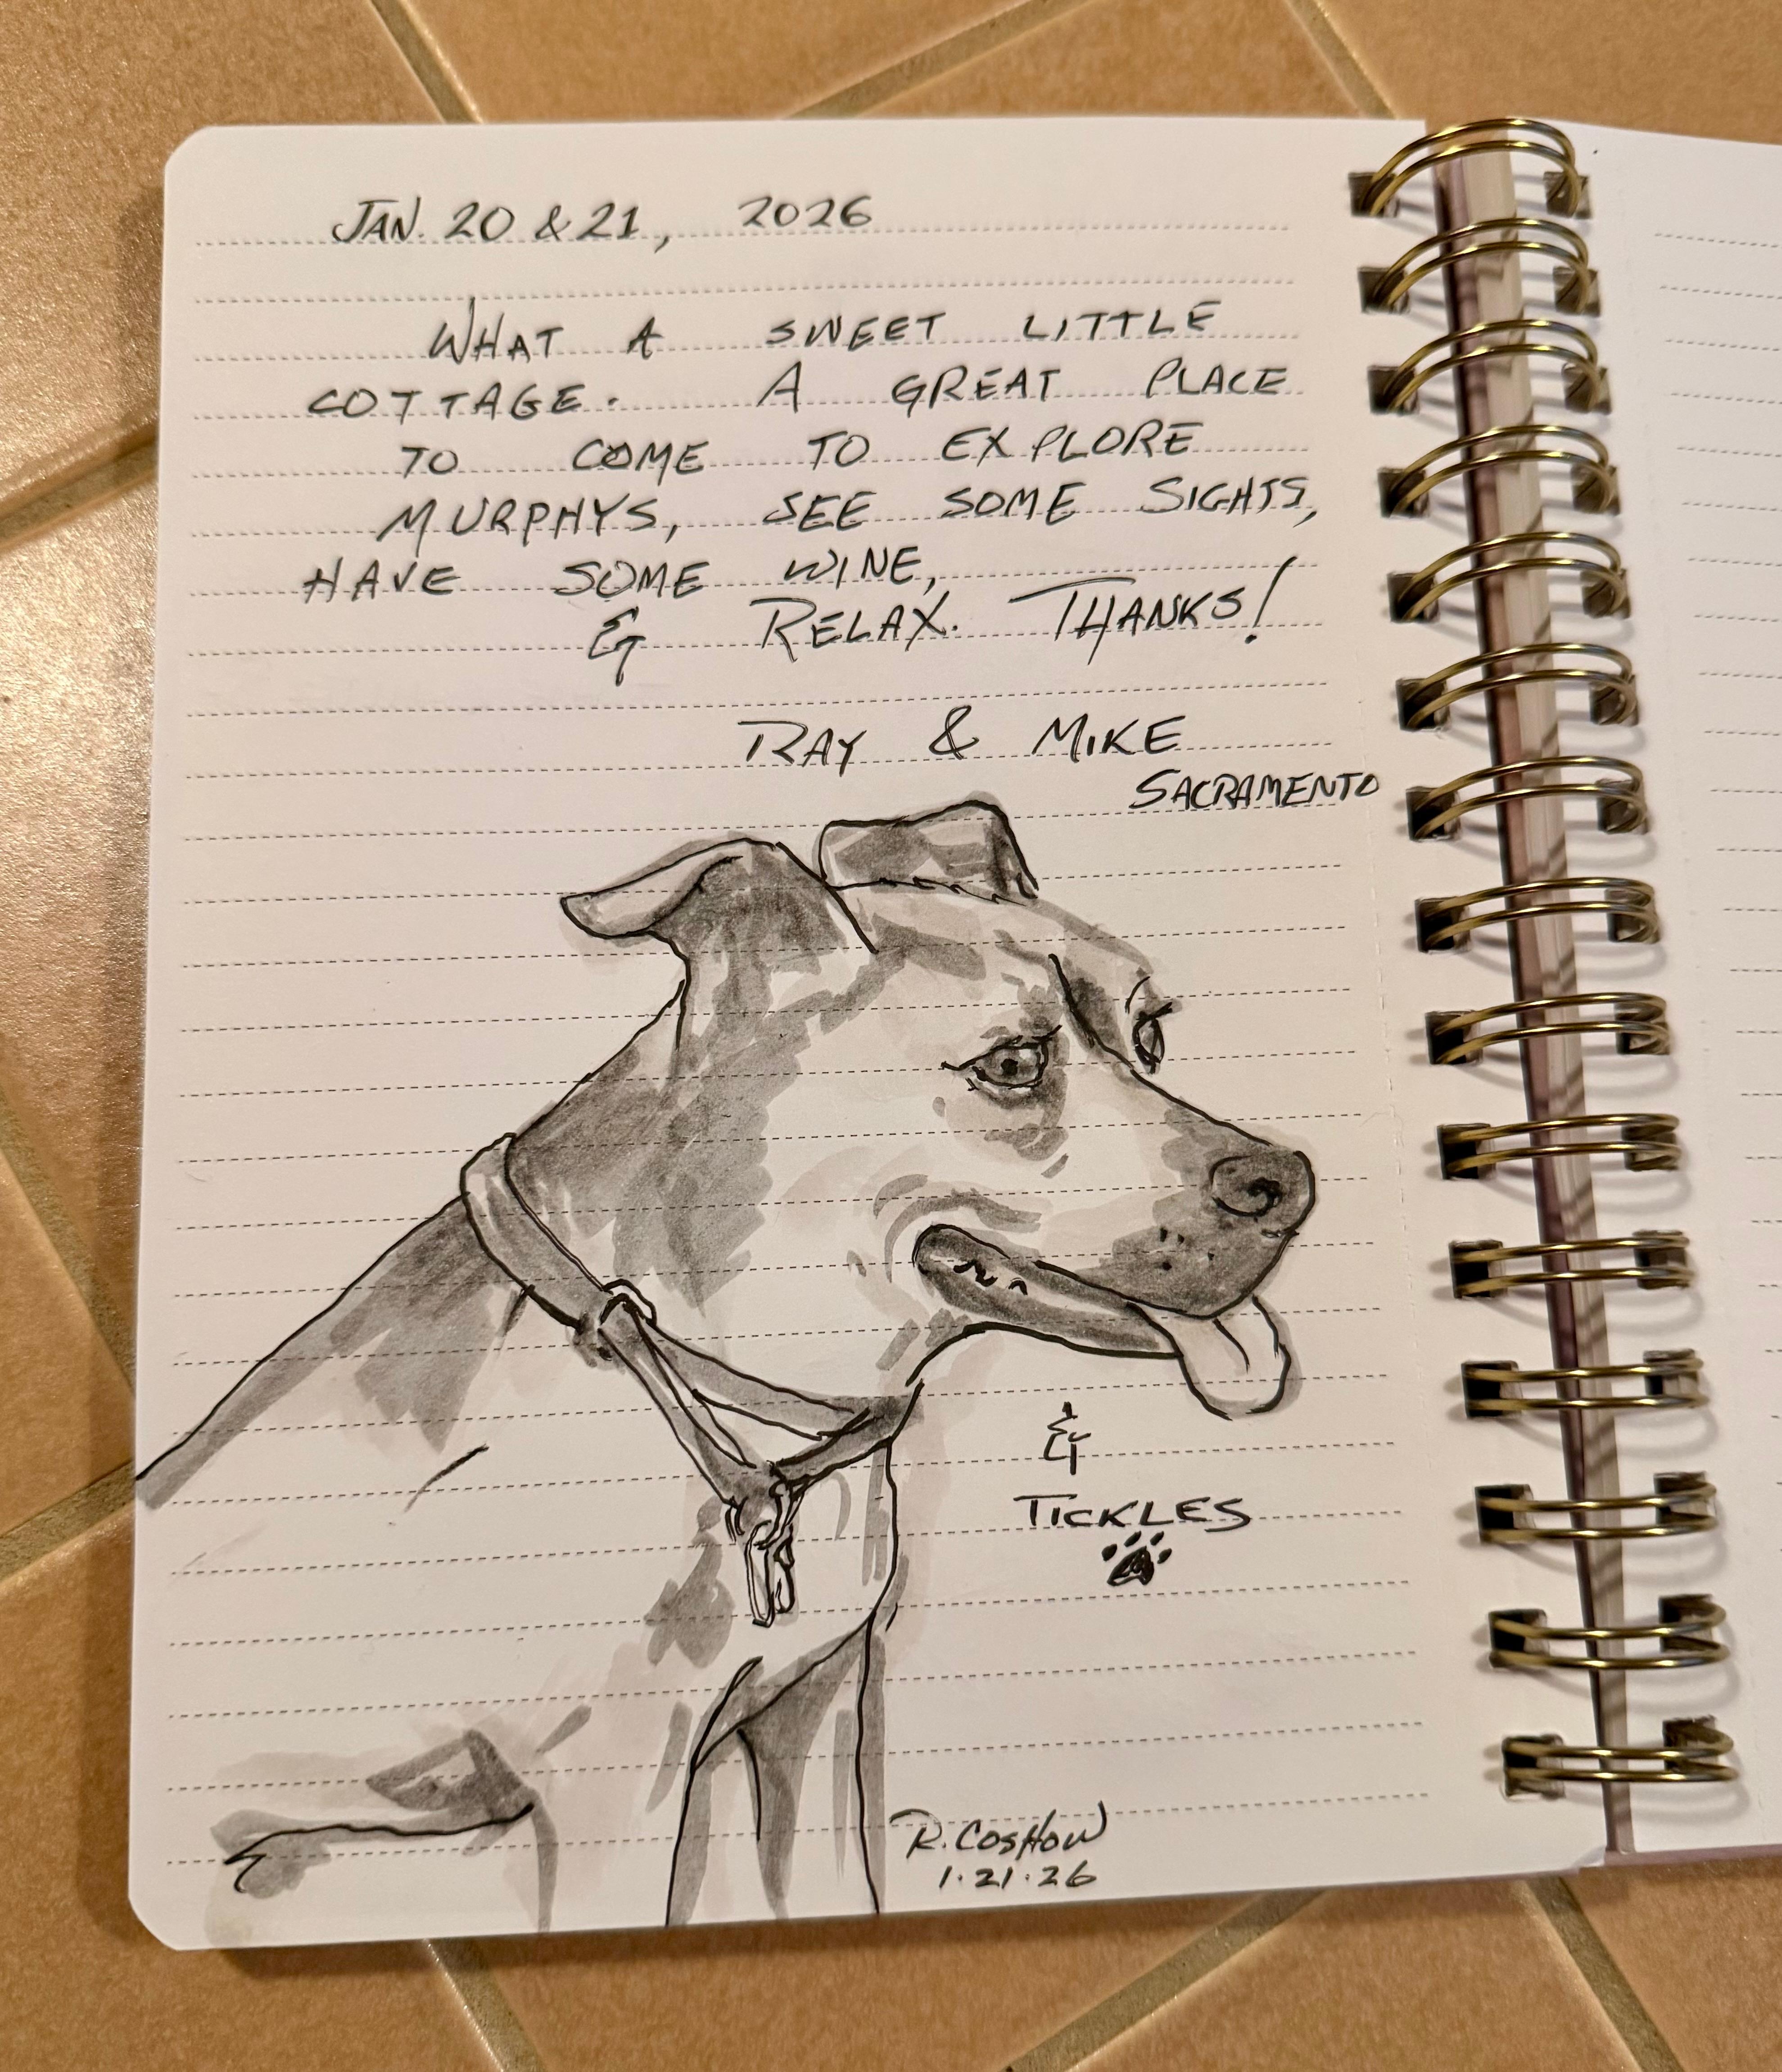 JAN. 20 & 21, 2026
WHAT A SWEET LITTLE
COTTAGE. A GREAT PLACE
TO COME TO EXPLORE
MURPHYS, SEE SOME SIGHTS,
HAVE SOME WINE,
& RELAX. THANKS!
RAY & MIKE
SACRAMENTO
&
TICKLES
R. COSHOW
1·21·26